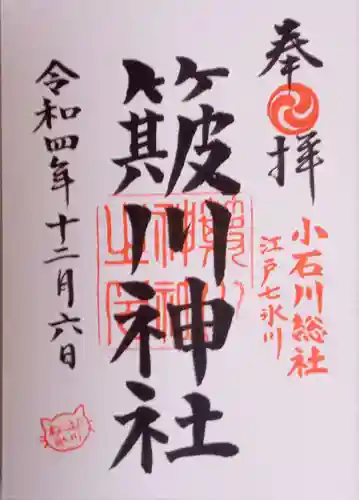 奉拝
小石川総社
江戸七氷川
簸川神社
令和四年十二月六日